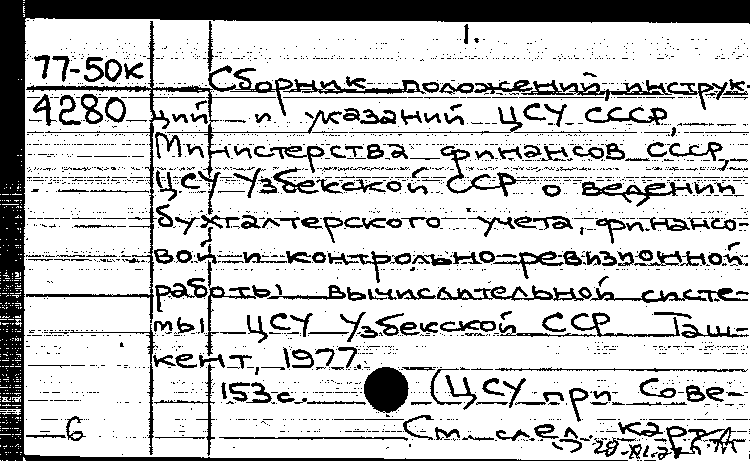 1.
77-50к
4280
Сборник положений, инструк-
ций и указаний ЦСУ СССР,
Министерства финансов СССР,
ЦСУ Узбекской ССР о ведении
бухгалтерского учета, финансо-
вой и контрольно-ревизионной
работы вычислительной систе-
мы ЦСУ Узбекской ССР Таш-
кент, 1977.
153с. (ЦСУ при Сове-
6 См. след. карт